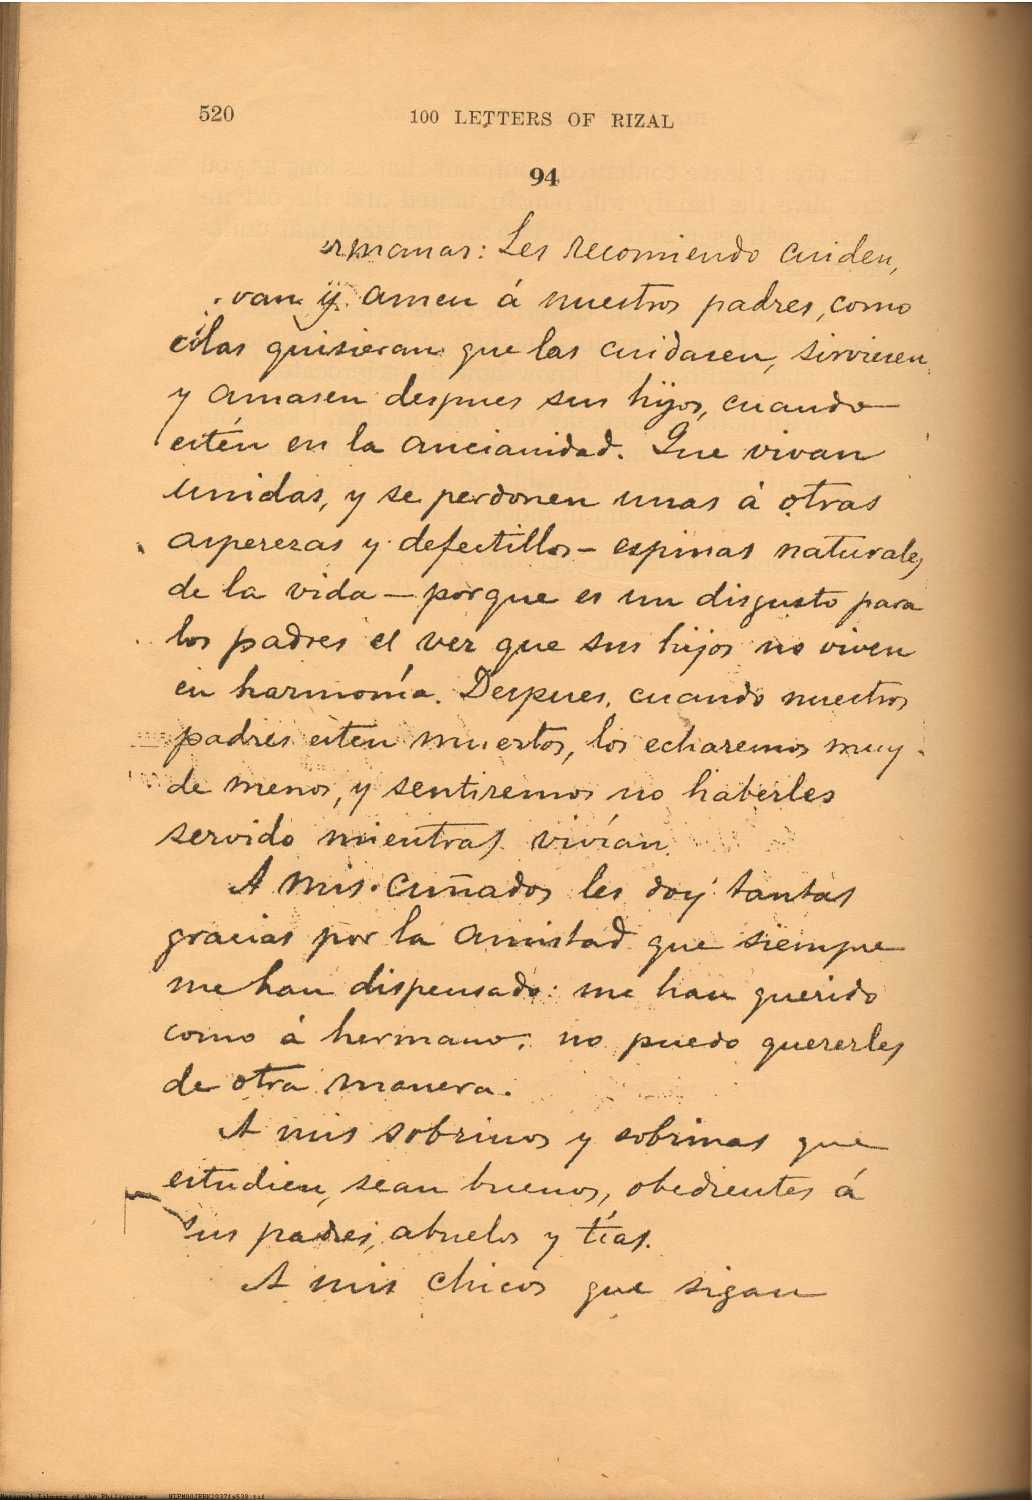 520 100 LETTERS OF RIZAL
94
ermanas: Les recomiendo cuiden,
van y amen á nuestros padres, como
ellas quisieran que las cuidasen, sirviesen
y amasen despues sus hijos, cuando
estén en la ancianidad. Que vivan
unidas, y se perdonen unas á otras
asperezas y defectillos – espinas naturales
de la vida – porque es un disgusto para
los padres el ver que sus hijos no viven
en harmonía. Despues, cuando nuestros
padres esten muertos, los echaremos muy
de menos, y sentiremos no haberles
servido mientras vivían.
A mis cuñados les doy tantas
gracias por la amistad que siempre
me han dispensado: me han querido
como á hermano; no puedo quererles
de otra manera.
A mis sobrinos y sobrinas que
estudien, sean buenos, obedientes á
sus padres, abuelos y tías.
A mis chicos que sigan
National Library of the Philippines